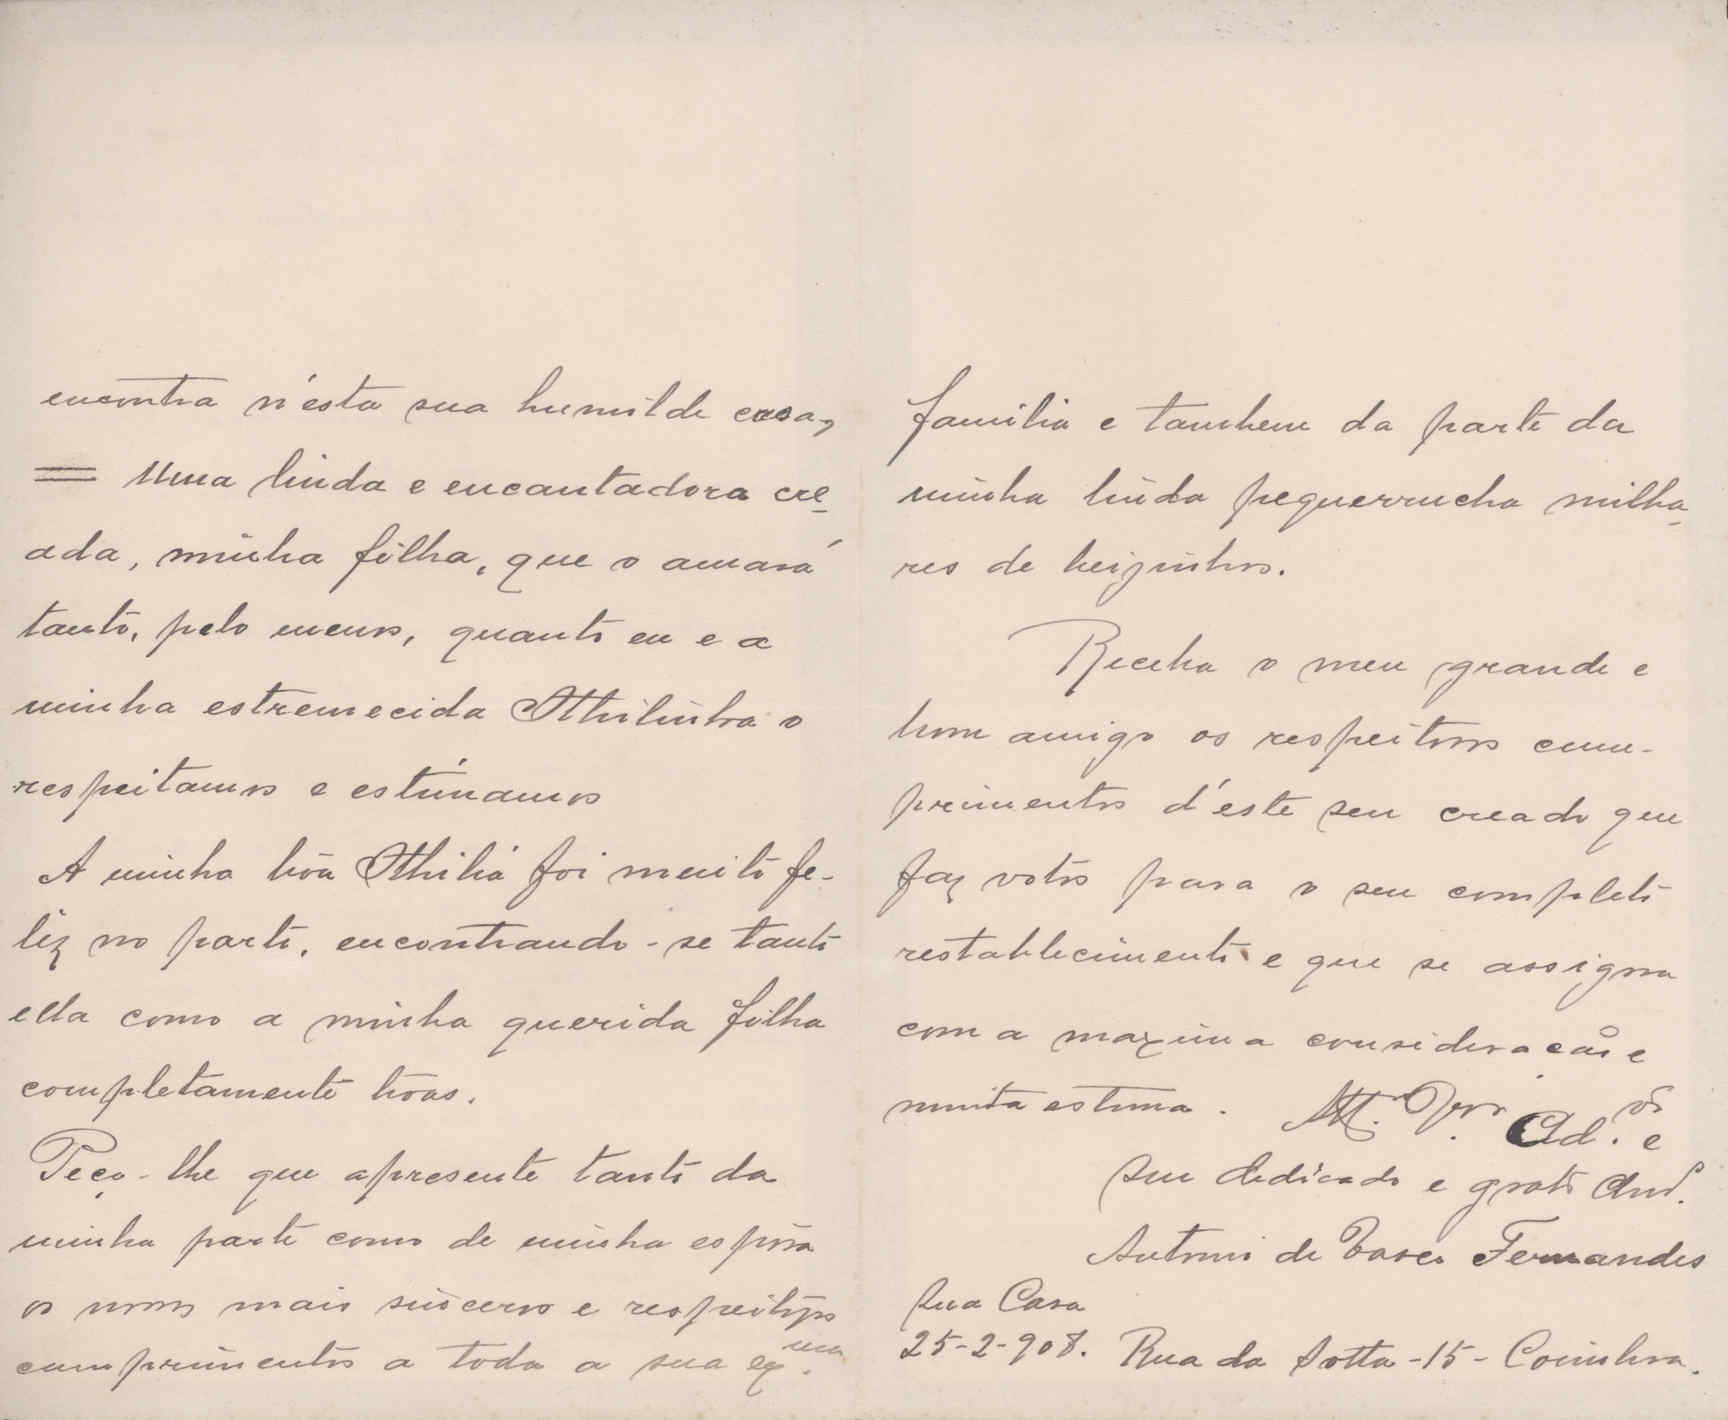 encontra n'esta sua humilde casa,
= Uma linda e encantadora cre-
ada, minha filha, que o amará
tanto, pelo menos, quanto eu e a
minha estremecida Othilinha o
respeitamos e estimamos
A minha bôa Othilia foi muito fe-
liz no parto, encontrando-se tanto
ella como a minha querida filha
completamente bôas.
Peço-lhe que apresente tanto da
minha parte como de minha espôsa
os nossos mais sinceros e respeitosos
cumprimentos a toda a sua ex.ma
familia e tambem da parte da
minha linda pequerrucha milha-
res de beijinhos.
Receba o meu grande e
bom amigo os respeitosos cum-
primentos d'este seu creado que
faz votos para o seu completo
restablecimento e que se assigna
com a maxima consideração e
muita estima. Att.º Vor Ad.or e
seu dedicado e grato Am.º
Antonio de Fernandes
Sua Casa
25-2-908. Rua da Sotta-15-Coimbra.